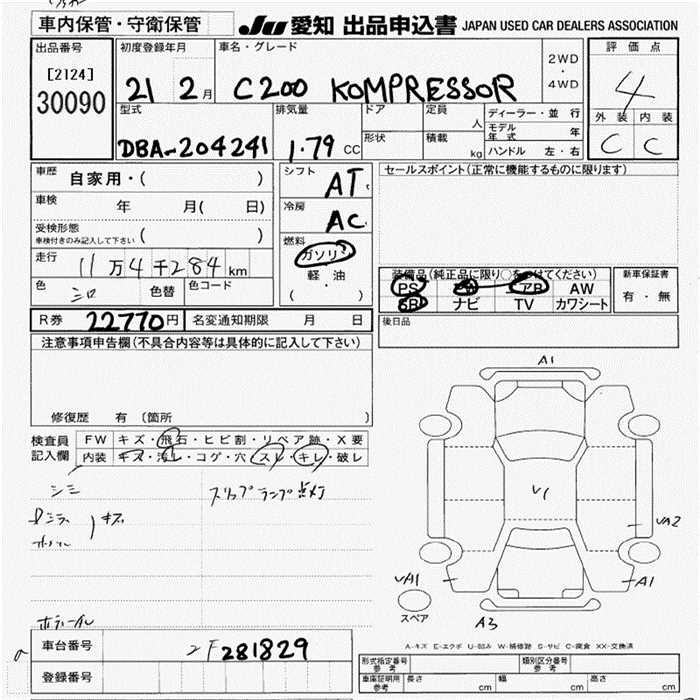 車内保管・守衛保管
JU 愛知 出品申込書 JAPAN USED CAR DEALERS ASSOCIATION
出品番号
[2124]
30090
初度登録年月
21 2月
車名・グレード
C200 KOMPRESSOR
2WD
・
4WD
評価点
4
外装 内装
C C
型式
DBA-204241
排気量
1.79 CC
ドア
形状
定員
人
積載
kg
ディーラー・並行
モデル年式 年
ハンドル 左・右
車歴 自家用・( )
車検 年 月( 日)
受検形態
車検付きのみ記入して下さい ( )
走行 11万4千284km
色 色替 色コード
シフト AT
冷房 AC
燃料
ガソリン
軽・油
( )
セールスポイント(正常に機能するものに限ります)
装備品(純正品に限り○をつけてください)
PS PW エアB AW
SR ナビ TV カワシート
新車保証書
有・無
R券 22770円 名変通知期限 月 日
後日品
注意事項申告欄(不具合内容等は具体的に記入して下さい)
修復歴 有 〔箇所 〕
検査員記入欄
FW キズ・飛石・ヒビ割・リペア跡・X要
内装 キズ・汚レ・コゲ・穴・スレ・キレ・破レ
シミ
スリップランプ点灯
キズ
A1
V1
VA2
VA1
A1
スペア
A3
A-キズ E-エクボ U-凹み W-補修跡 S-サビ C-腐食 XX-交換済
車台番号 2F281829
登録番号
型式指定番号 参考
類別区分番号 参考
車庫証明用 参考 長さ cm 幅 cm 高さ cm